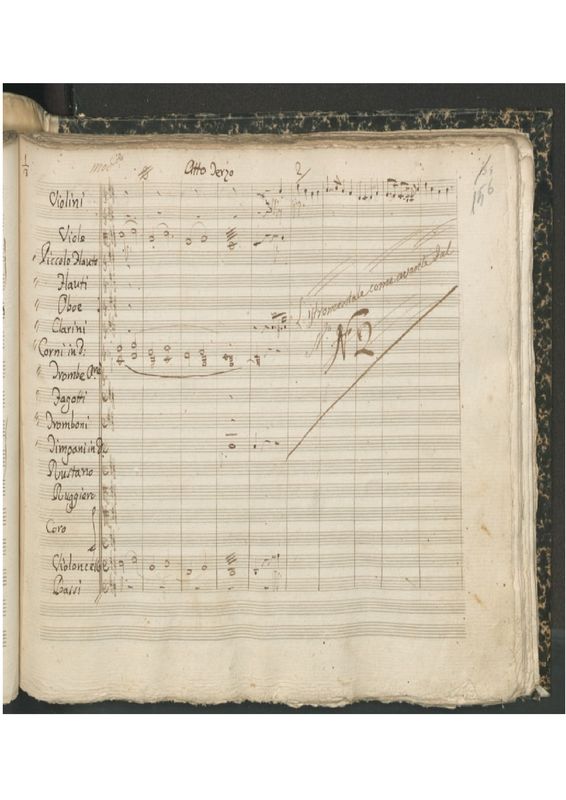 Atto Terzo
2
156
Violini
Viole
Piccolo Flauto
Flauti
Oboe
Clarini
Corni in D:
Trombe
Fagotti
Tromboni
Timpani in D:
Rustano
Ruggiero
Coro
Violoncello
Bassi
L'istromentale come avanti dal
N 2